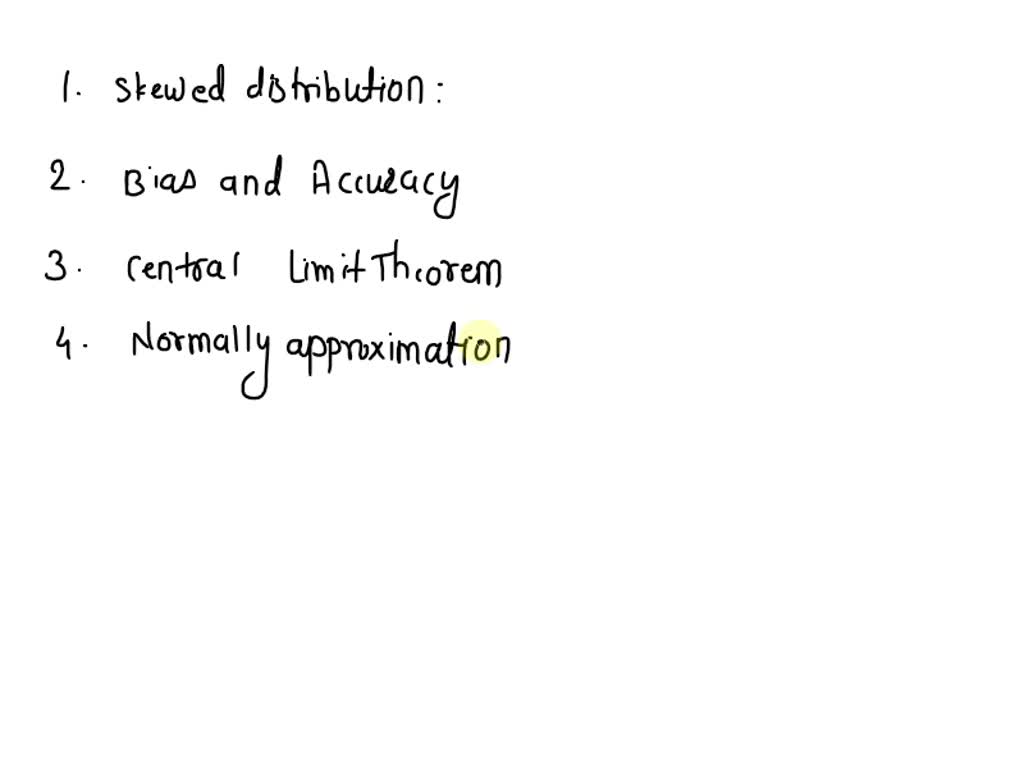 1. Skewed distribution:
2. Bias and Accuracy
3. Central Limit Theorem
4. Normally approximation